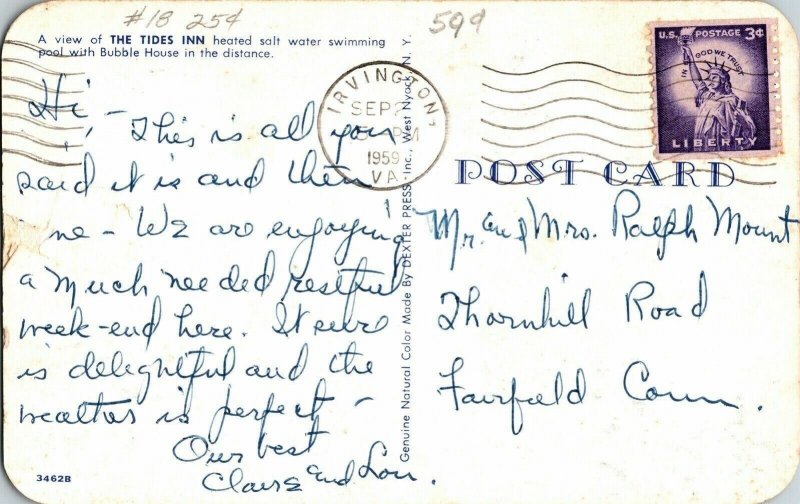 #18 25¢
59¢
A view of THE TIDES INN heated salt water swimming
pool with Bubble House in the distance.
U.S. POSTAGE 3¢
IN GOD WE TRUST
LIBERTY
IRVINGTON,
SEP 2
PM
1959
VA.
POST CARD
Hi, -
This is all you
said it is and then
- We are enjoying
a much needed restful
week-end here. It sure
is delightful and the
weather is perfect -
Our best
Claire and Lou.
Mr. and Mrs. Ralph Mount
Thornhill Road
Fairfield Conn.
Genuine Natural Color Made By DEXTER PRESS, Inc., West Nyack, N. Y.
3462B